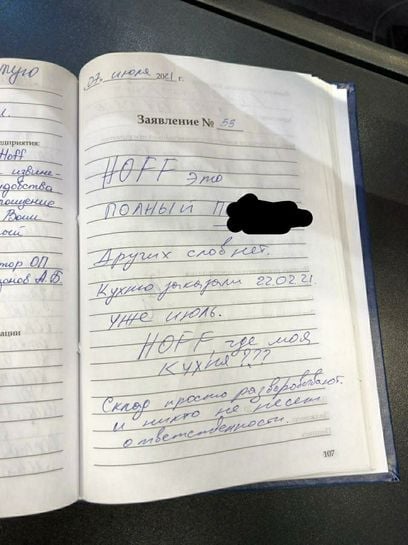 тую
л.
едприятия:
Hoff
извине-
удобства
ращение
Ваш
тор ОП
онов А.Б.
ации
07 июля 2021 г.
Заявление № 55
HOFF это
ПОЛНЫЙ П
Других слов нет.
Кухню заказали 22.02.21
уже июль.
HOFF где моя
кухня???
Склад просто разворовывают
и никто не несет
ответственности.
107